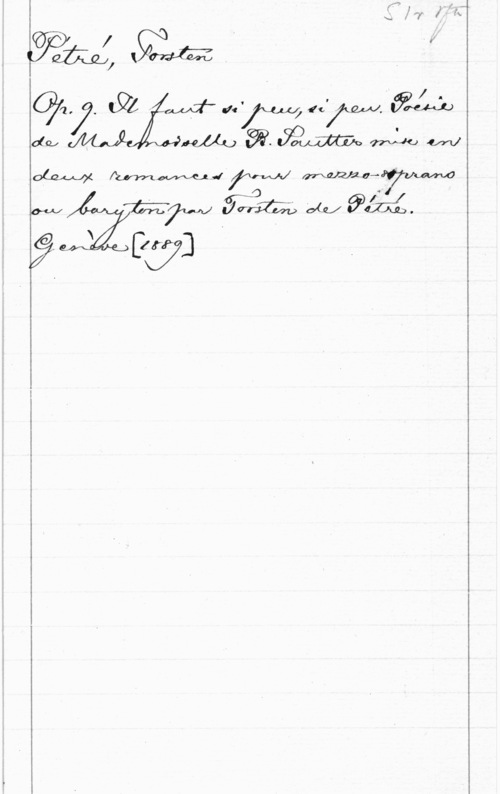 Pétré, Torsten
Op. 9. Il faut si peu, si peu. Poésie
de Mademoiselle B. Sautter mise en
deux romances pour mezzo-soprano
ou baryton par Torsten de Pétré.
Genève [1889]